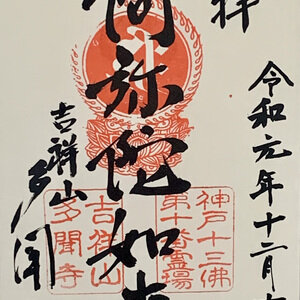 拝
令和元年十二月
阿弥陀如来
吉祥山
多聞
神戸十三佛
第十番霊場
吉祥山
多聞寺